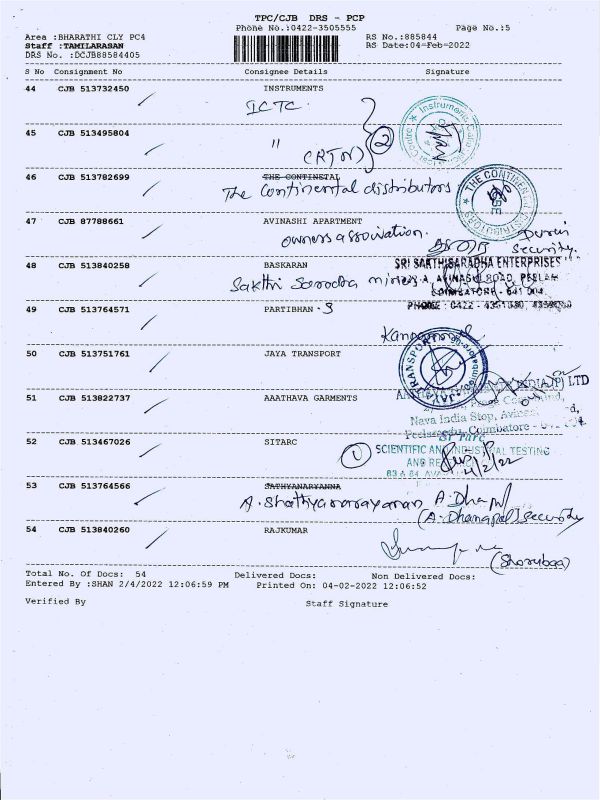 TPC/CJB DRS - PCP
Phone No.:0422-3505555 Page No.:5
Area :BHARATHI CLY PC4 RS No.:885844
Staff :TAMILARASAN RS Date:04=Feb=2022
DRS No. :DCJB88584405
S No Consignment No Consignee Details Signature
44 CJB 513732450 INSTRUMENTS
ICTC.
45 CJB 513495804
"
(RTN) 2
46 CJB 513782699 THE CONTINETAL
The Continental distributors
THE CONTINENTAL DISTRIBUTORS
47 CJB 87788661 AVINASHI APARTMENT
owners association.
Security.
48 CJB 513840258 BASKARAN SRI SAKTHISARADHA ENTERPRISES
Sakthi Saradha AVINASHI ROAD, PEELAM
COIMBATORE - 641 004
49 CJB 513764571 PARTIBHAN .S PHONE : 0422 -
50 CJB 513751761 JAYA TRANSPORT
TRANSPORT
51 CJB 513822737 AAATHAVA GARMENTS INDIA(P) LTD
Nava India Stop,
Coimbatore -
52 CJB 513467026 SITARC
1 SCIENTIFIC AND INDUSTRIAL TESTING
AND RE
4/2/22
83 A 84, AV
53 CJB 513764566 SATHYANARYANNA
A. Shathyanarayanan A. Dhapl
(A. Dhanapal) security
54 CJB 513840260 RAJKUMAR
(Shorubaa)
Total No. Of Docs: 54 Delivered Docs: Non Delivered Docs:
Entered By :SHAN 2/4/2022 12:06:59 PM Printed On: 04-02-2022 12:06:52
Verified By Staff Signature